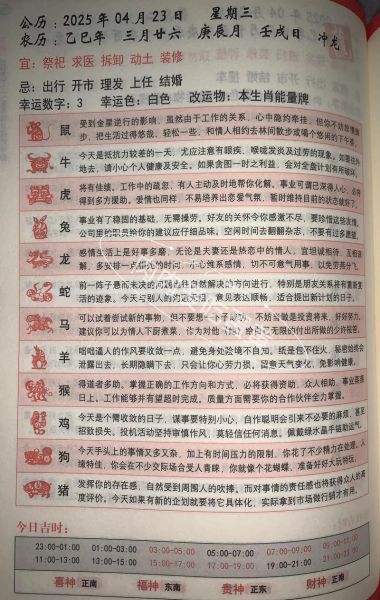 公历：2025年04月23日 星期三
农历：乙巳年 三月廿六 庚辰月 壬戌日 冲龙
宜：祭祀 求医 拆卸 动土 装修
忌：出行 开市 理发 上任 结婚
幸运数字：3 幸运色：白色 改运物：本生肖能量牌
鼠
受到金星逆行的影响，虽然由于工作的关系，心中隐约牵挂，但你不妨放慢脚
步，把生活过得悠哉，轻松一些，和情人相约去林间散步或喝个悠闲的下午茶。
牛
今天是抵抗力较差的一天，尤应注意有眼疾、喉咙发炎及过劳的现象。如要往外
地去，请小心个人健康及安全。如果贪图一时之利益，会对全盘计划有所破坏。
虎
将有佳绩。工作中的疏忽，有人主动及时地帮你化解。事业可谓已深得人心，必将
得到多方援助。爱情也同样，不易培养出恋爱气氛，暂时维持目前的状态就好了。
兔
事业有了稳固的基础，无需操劳。好友的关怀令你感激不尽，要珍惜这些友情。
公司里的职员给你的建议应仔细品味。空闲时间去翻翻杂志，不要有过多愿望。
龙
感情生活上是好事多磨，无论是夫妻还是热恋中的情人，宜坦诚相待、互相退
让，多安排一点的时间，小心维系感情，切不可意气用事，以免劳燕分飞。
蛇
前一阵子悬而未决的问题会往自然解决的方向进行，特别是朋友关系将有重新复
活的迹象。今天与别人的沟通无阻，意见表达顺畅，适合提出新计划的日子。
马
可以试着尝试新的事物，但不要想一下子成功，不妨当做是投资将来，好好努力。
建议你可以为情人下厨煮菜，作为对他（她）给自己无限的付出所做的少许报答。
羊
咄咄逼人的作风要收敛一点，避免身处险境不自知。纸是包不住火，秘密始终会
泄露出去，长期隐瞒下去，只会让你心劳力损。留意天气变化，免影响健康。
猴
得道者多助。掌握正确的工作方向和方式，必将获得资助，众人相助，事业蒸蒸
日上。工作能够并有望超时完成。质量方面需要你的合作伙伴全力掌握。
鸡
今天是个需收敛的日子，谋事要特别小心，自作聪明会引来不必要的麻烦，甚至
招致损失。投机活动坚持审慎作风，莫轻信任何消息。佩戴绿水晶手链助运气。
狗
今天手头上的事情又多又杂，加上有时间压力的限制，你花了不少精力在处理。人
缘特佳，你会在不少交际场合受人青睐，你就像个花蝴蝶，准备好好大玩特玩。
猪
发挥你的存在感，自然受到周围人的吹捧。而对事情的责任感也将获得众人的高
度评价。今天如果有新的企划就要将它具体化，实际拿到市场做行销才有用。
今日吉时：
23:00-01:00 01:00-03:00 03:00-05:00 05:00-07:00 07:00-09:00 09:00-11:00
11:00-13:00 13:00-15:00 15:00-17:00 17:00-19:00 19:00-21:00 21:00-23:00
喜神 正南 福神 东南 贵神 正东 财神 正南